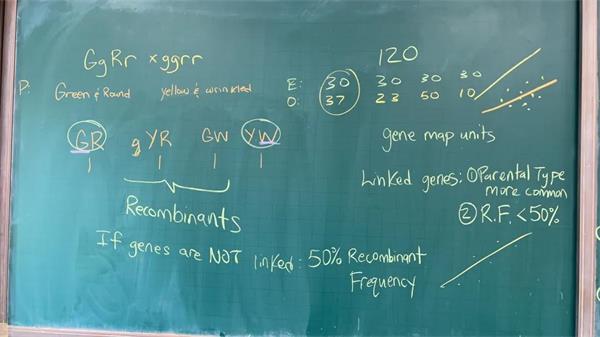 GgRr × ggrr
P: Green & Round yellow & wrinkled
GR gYR GW YW
1 1 1 1
Recombinants
If genes are NOT linked: 50% Recombinant
Frequency
120
E: 30 30 30 30
O: 37 23 50 10
gene map units
Linked genes: ① Parental Type
more common
② R.F. < 50%